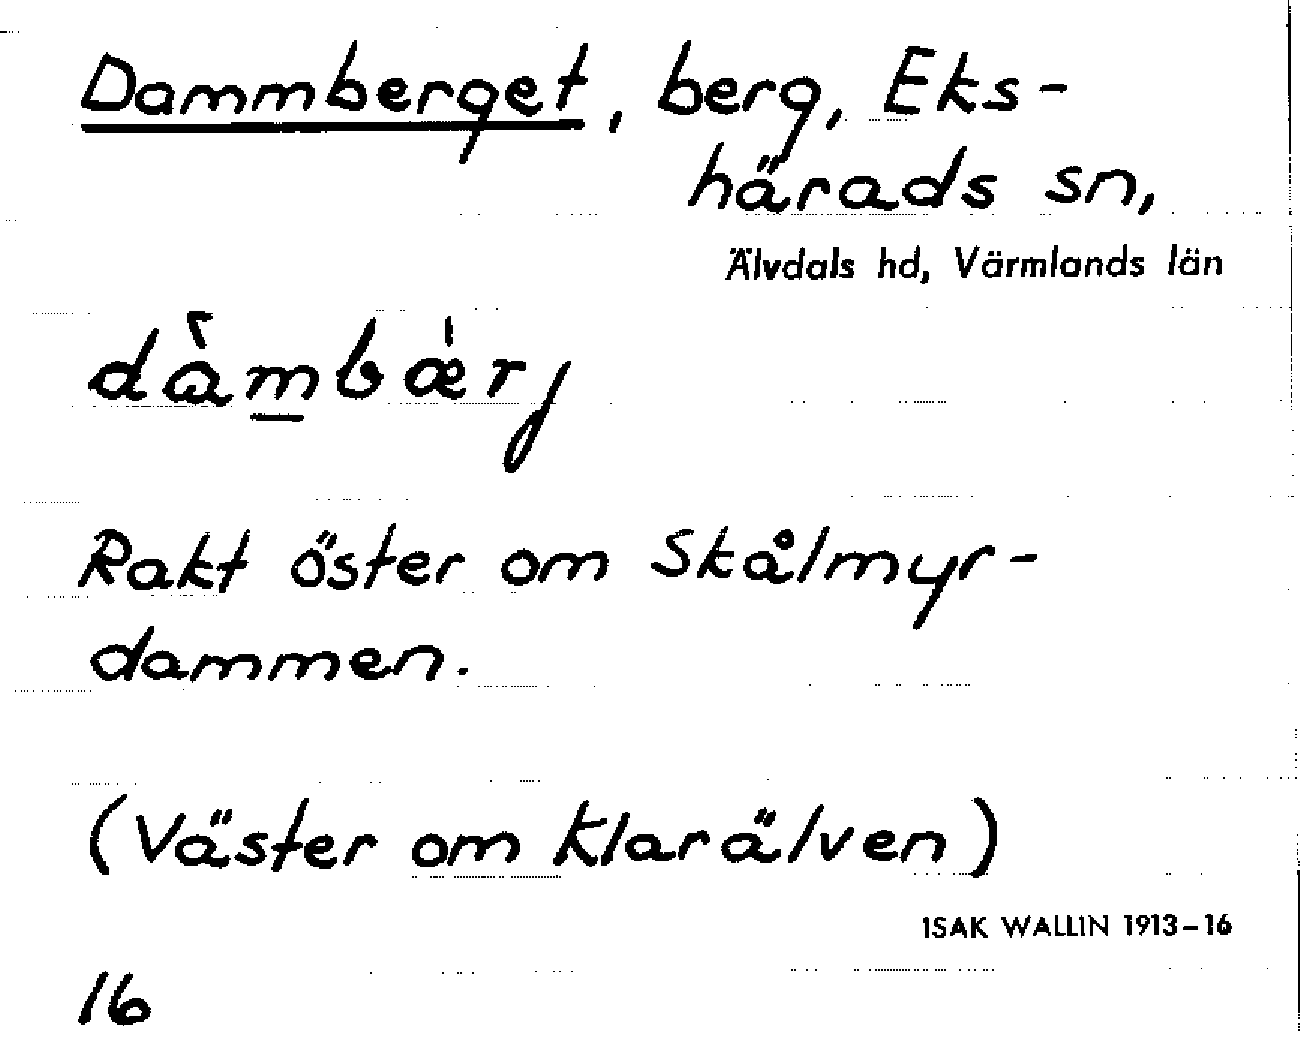 Dammberget, berg, Eks-
härads sn,
Älvdals hd, Värmlands län
dàmbæ̀rj
Rakt öster om Skålmyr-
dammen.
(Väster om Klarälven)
ISAK WALLIN 1913-16
16